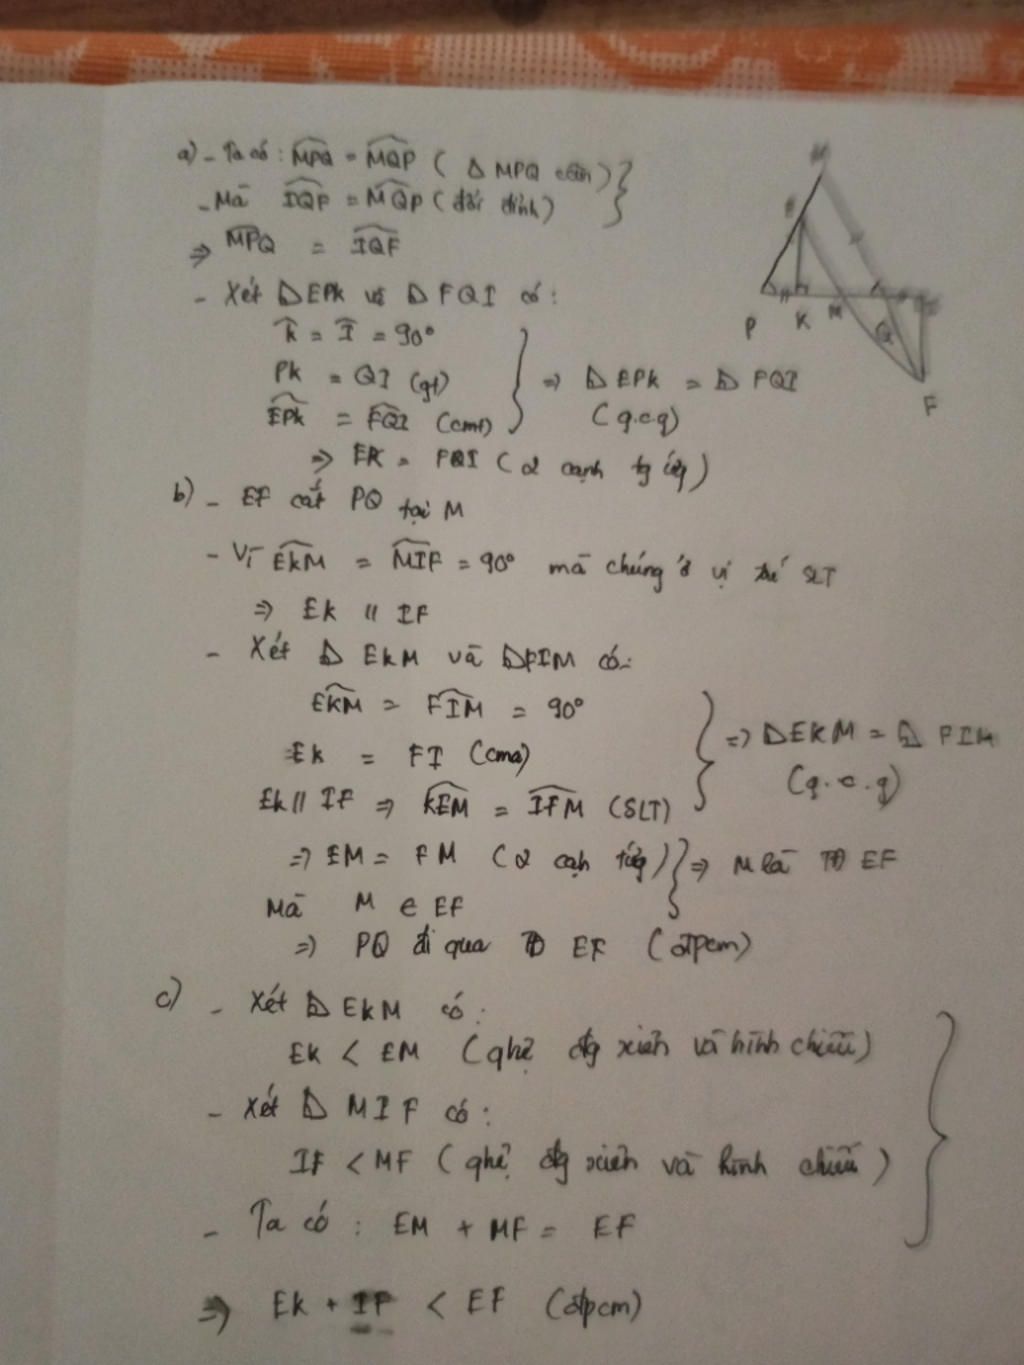 a) - Ta có: MPQ = MQP ( Δ MPQ cân) }
- Mà IQF = MQP (đối đỉnh)
⇒ MPQ = IQF
- Xét ΔEPK và ΔFQI có:
K = I = 90°
PK = QI (gt) } ⇒ ΔEPK = ΔFQI
EPK = FQI (cmt) (g.c.g)
⇒ EK = FQI (2 cạnh tg ứng)
M
E
P K M Q I
F
b) - EF cắt PQ tại M
- Vì EKM = MIF = 90° mà chúng ở vị thế SLT
⇒ EK // IF
- Xét Δ EKM và ΔFIM có:
EKM = FIM = 90°
EK = FI (cma) } ⇒ ΔEKM = Δ FIM
EK // IF ⇒ KEM = IFM (SLT) (g.c.g)
⇒ EM = FM (2 cạh tứg) } ⇒ M là TĐ EF
Mà M ∈ EF
⇒ PQ đi qua TĐ EF (đTpcm)
c) - Xét Δ EKM có:
EK < EM (qhệ đg xiên và hình chiếu)
- Xét Δ MIF có:
IF < MF (qhệ đg xiên và hình chiếu) }
- Ta có: EM + MF = EF
⇒ EK + IF < EF (đtpcm)